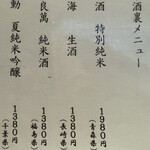 酒裏メニュー
酒 特別純米
1980円
(青森県)
海 生酒
1380円
(長崎県)
良萬 純米酒
1380円
(福島県)
動 夏純米吟醸
1380円
(千葉県)